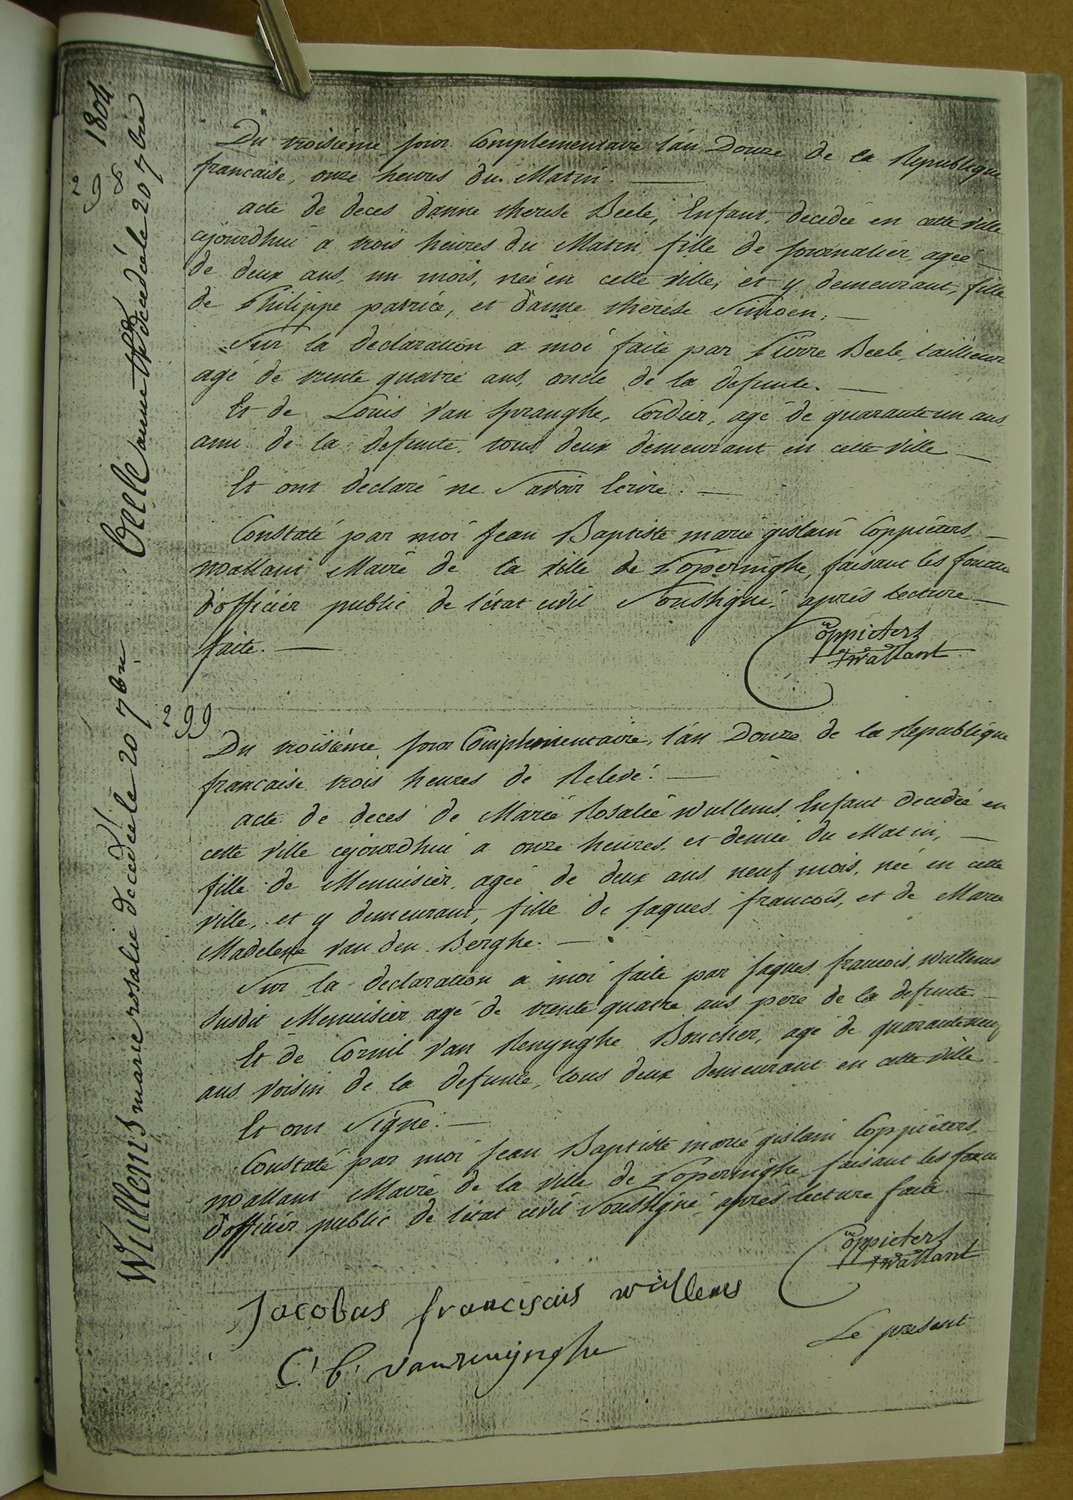 1804
298
Beele anne th. decedé le 20 7bre
Du troisieme jour Complementaire l'an Douze de la Republique
francaise, onze heures du Matin. —
acte de deces d'anne therese Beele, Enfant, decedée en cette ville
cejourdhui a trois heures du Matin, fille de journalier, agée
de deux ans, un mois, née en cette ville, et y demeurant, fille
de Philippe patrice, et d'anne therese Simoen; —
Sur la declaration a moi faite par Pierre Beele, tailleur
agé de trente quatre ans, oncle de la defunte. —
Et de Louis Van Spranghe, Cordier, agé de quarante un ans
ami de la defunte, tous deux demeurant en cette ville —
Et ont declaré ne Savoir Ecrire. —
Constaté par moi Jean Baptiste marie gislain Coppieters —
Wallant Maire de la Ville de Poperinghe, faisant les fonctn
d'officier public de l'état civil Soussigné, après lecture —
faite. —
Coppieters
twallant
299
Wullens marie rosalie decedée le 20 7bre
Du troisieme jour Complementaire, l'an Douze de la Republique
francaise trois heures de Relevé. —
acte de deces de Marie Rosalie Wullens, Enfant decedée en
cette ville cejourdhui a onze heures et demie du Matin, —
fille de Menuisier, agée de deux ans neuf mois, née en cette
ville, et y demeurant, fille de jaques francois, et de Marie
Madelene Van den Berghe. —
Sur la declaration a moi faite par jaques francois Wullens
susdit Menuisier, agé de trente quatre ans pere de la defunte
Et de Cornil Van Renynghe Boucher, agé de quarante neuf
ans voisin de la defunte, tous deux demeurant en cette ville
Et ont Signé. —
Constaté par moi Jean Baptiste marie gislain Coppieters,
Wallant Maire de la ville de Poperinghe faisant les fonctn
d'officier public de l'état civil Soussigné après lecture faite —
Coppieters
twallant
Jacobus franciscus wullens
C: b: vanrenynghe
Le present